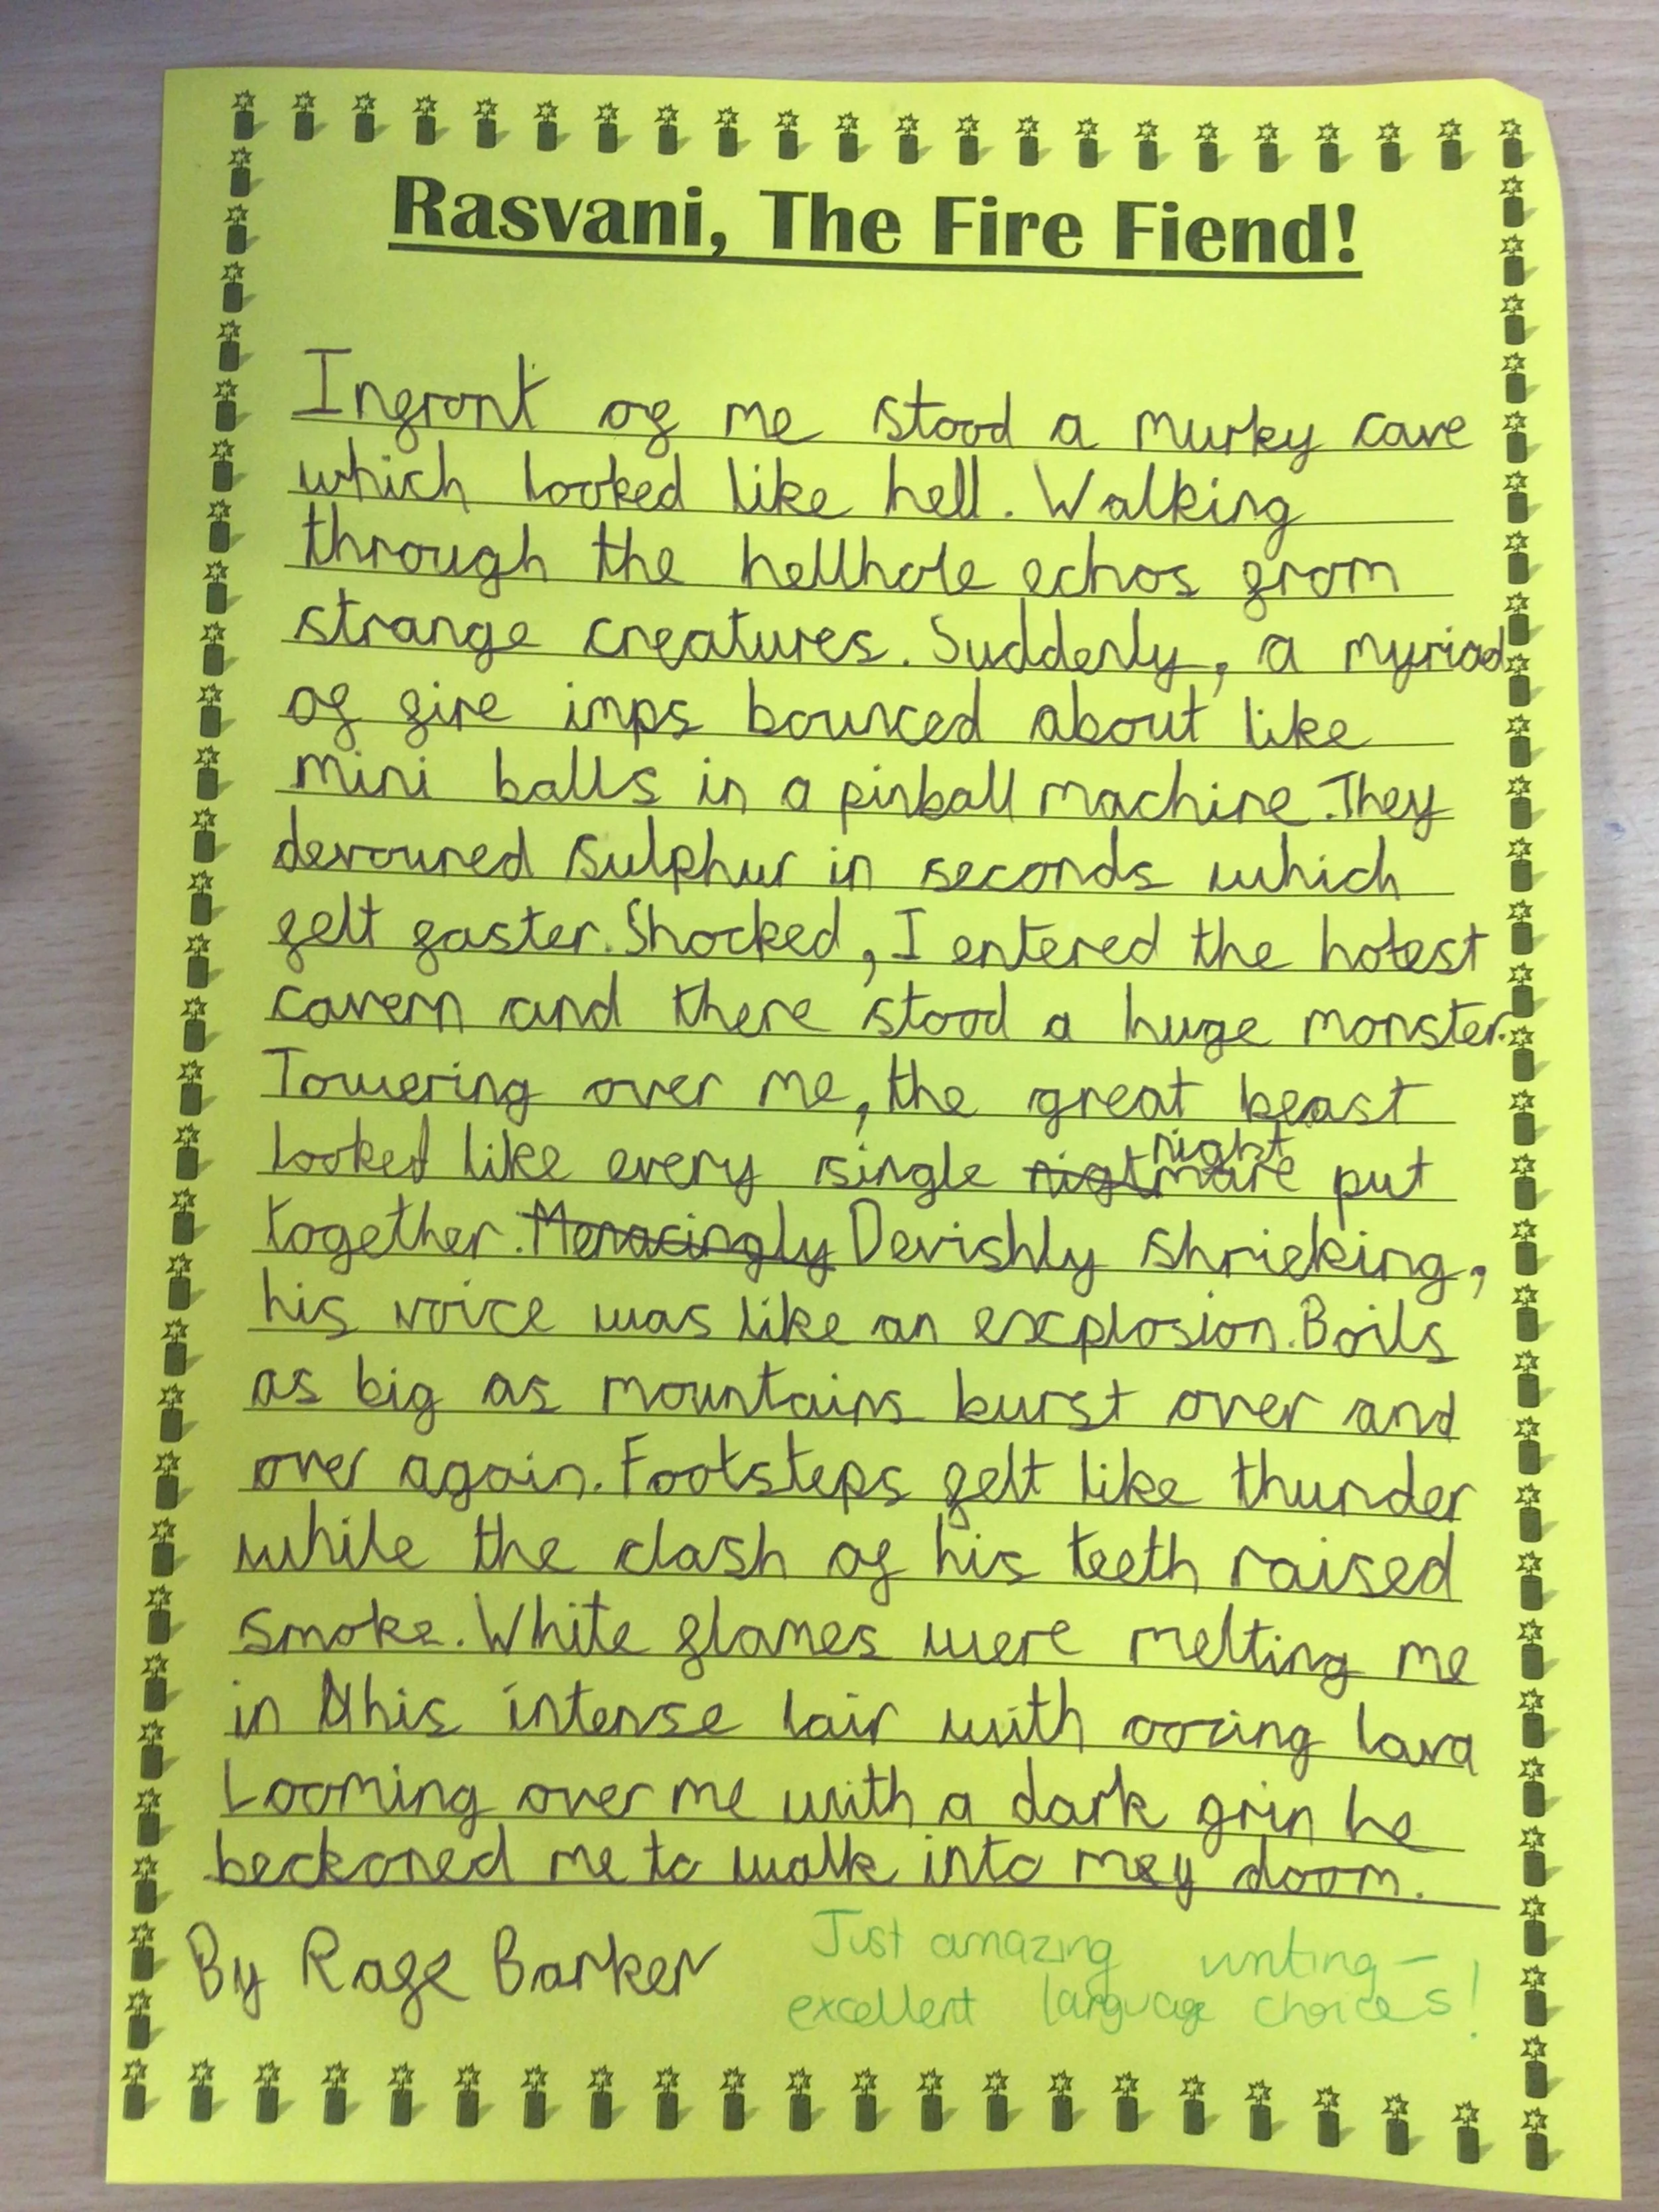 Rasvani, The Fire Fiend!
Infront of me stood a murky cave
which looked like hell. Walking
through the hellhole echos from
strange creatures. Suddenly, a myriad
of fire imps bounced about like
mini balls in a pinball machine. They
devoured sulphur in seconds which
felt faster. Shocked, I entered the hotest
cavern and there stood a huge monster.
Towering over me, the great beast
looked like every single nightmare put
together. Menacingly Devishly shrieking,
his voice was like an explosion. Boils
as big as mountains burst over and
over again. Footsteps felt like thunder
while the clash of his teeth raised
smoke. White flames were melting me
in this intense lair with oozing lava
Looming over me with a dark grin he
beckoned me to walk into my doom.
By Rafe Barker
Just amazing writing –
excellent language choices!